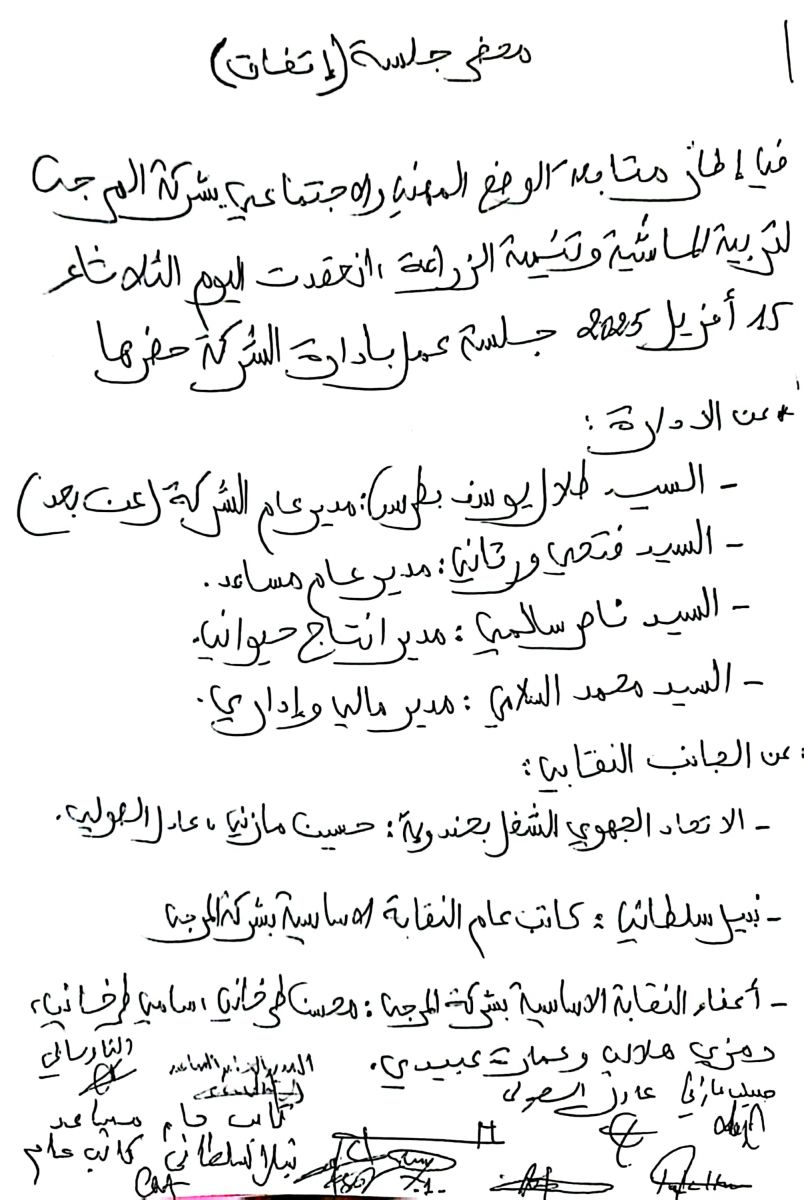 محضر جلسة (إتفاق)
1
في إطار متابعة الوضع المهني والاجتماعي بشركة المرجى
لتربية الماشية وتنمية الزراعة، انعقدت اليوم الثلاثاء
15 أفريل 2025 جلسة عمل بادارة الشركة حضرها
* عن الادارة :
- السيد طلال يوسف بطرس : مدير عام الشركة (عن بعد)
- السيد فتحي ورتاني : مدير عام مساعد .
- السيد ناصر سالمي : مدير انتاج حيواني.
- السيد محمد السلامي : مدير مالي وإداري .
عن الجانب النقابي :
- الاتحاد الجهوي للشغل بجندوبة : حسين مازني ، عادل الصولي .
- نبيل سلطاني : كاتب عام النقابة الاساسية بشركة المرجى
- أعضاء النقابة الاساسية بشركة المرجى : محسن طرخاني ، سامي طرخاني ،
رمزي هلالي وعمارة عبيدي .
عادل الصولي
كاتب عام مساعد
كاتب عام